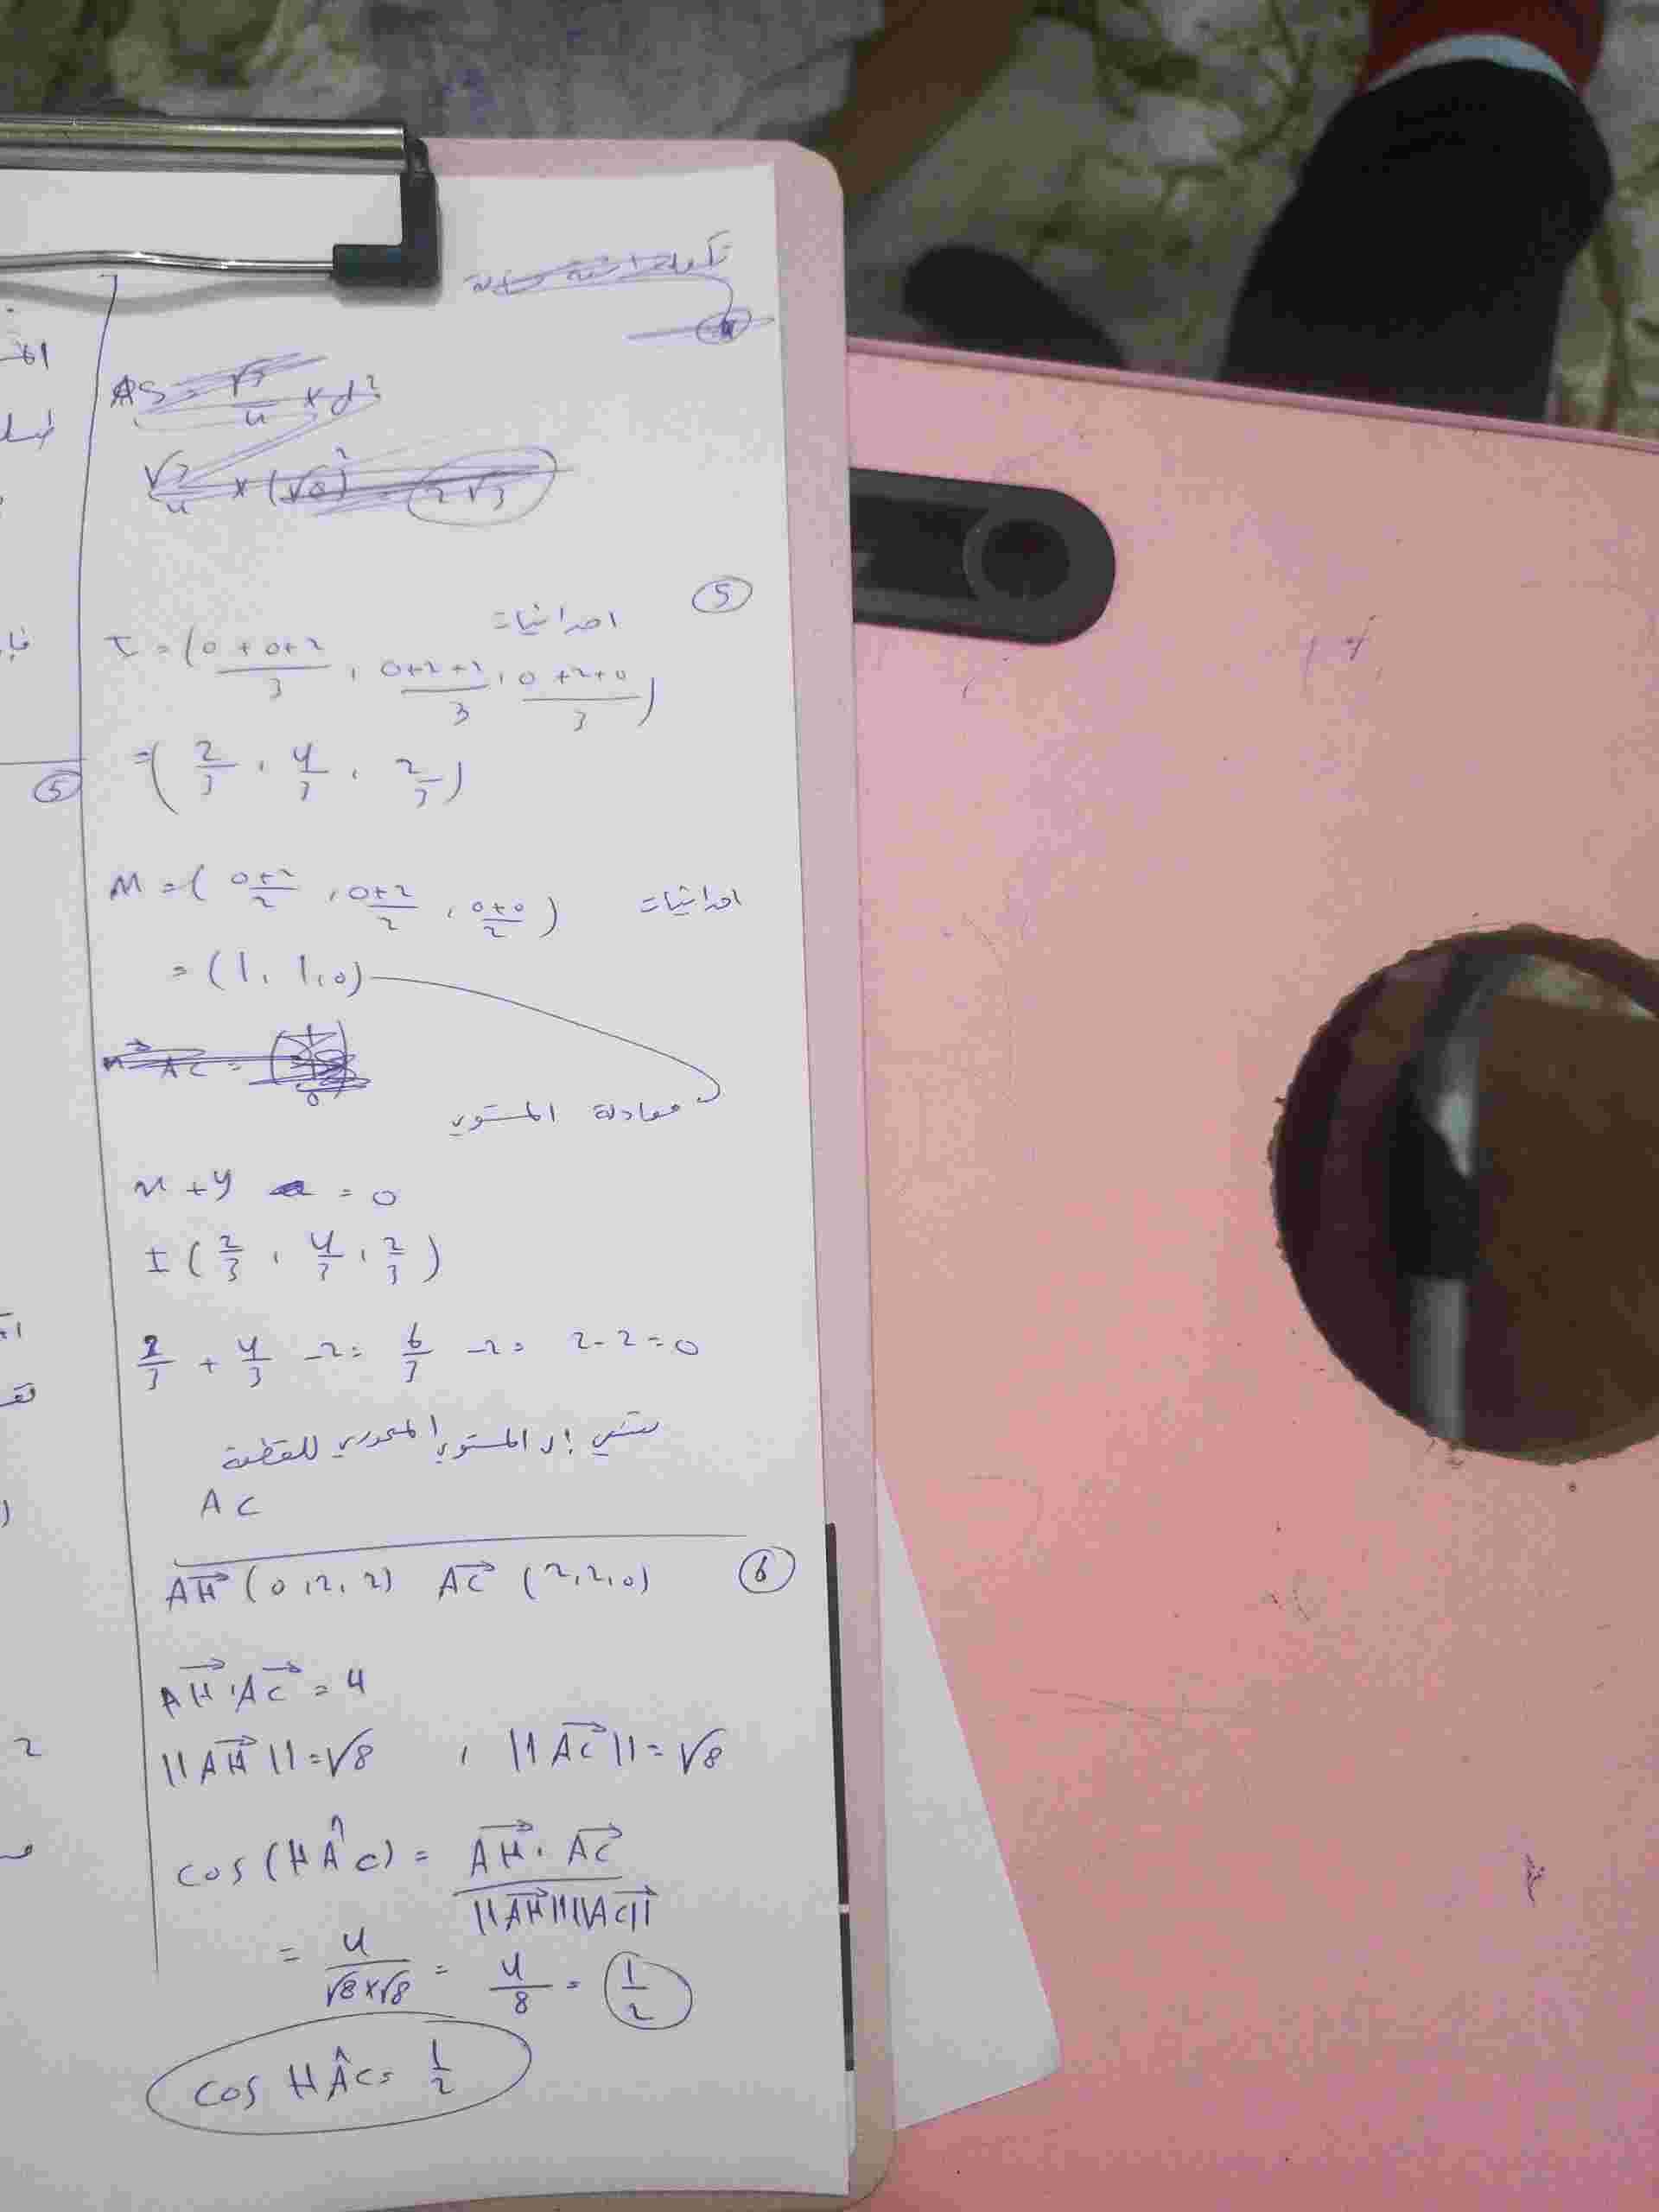 AS = √3/4 × d²
√3/4 × (√8)² = 2√3
5
احداثيات
I = (0+0+2/3 , 0+2+2/3 , 0+2+0/3)
= (2/3 , 4/3 , 2/3)
M = (0+2/2 , 0+2/2 , 0+0/2) احداثيات
= (1, 1, 0)
معادلة المستوي
x + y = 0
I (2/3 , 4/3 , 2/3)
2/3 + 4/3 - 2 = 6/3 - 2 = 2 - 2 = 0
تنتمي إلى المستوي المحوري للقطعة
AC
AH (0, 2, 2) AC (2, 2, 0) 6
AH . AC = 4
||AH|| = √8 , ||AC|| = √8
cos (HÂC) = AH . AC / ||AH|| ||AC||
= 4/√8×√8 = 4/8 = 1/2
cos HÂC = 1/2
5
2